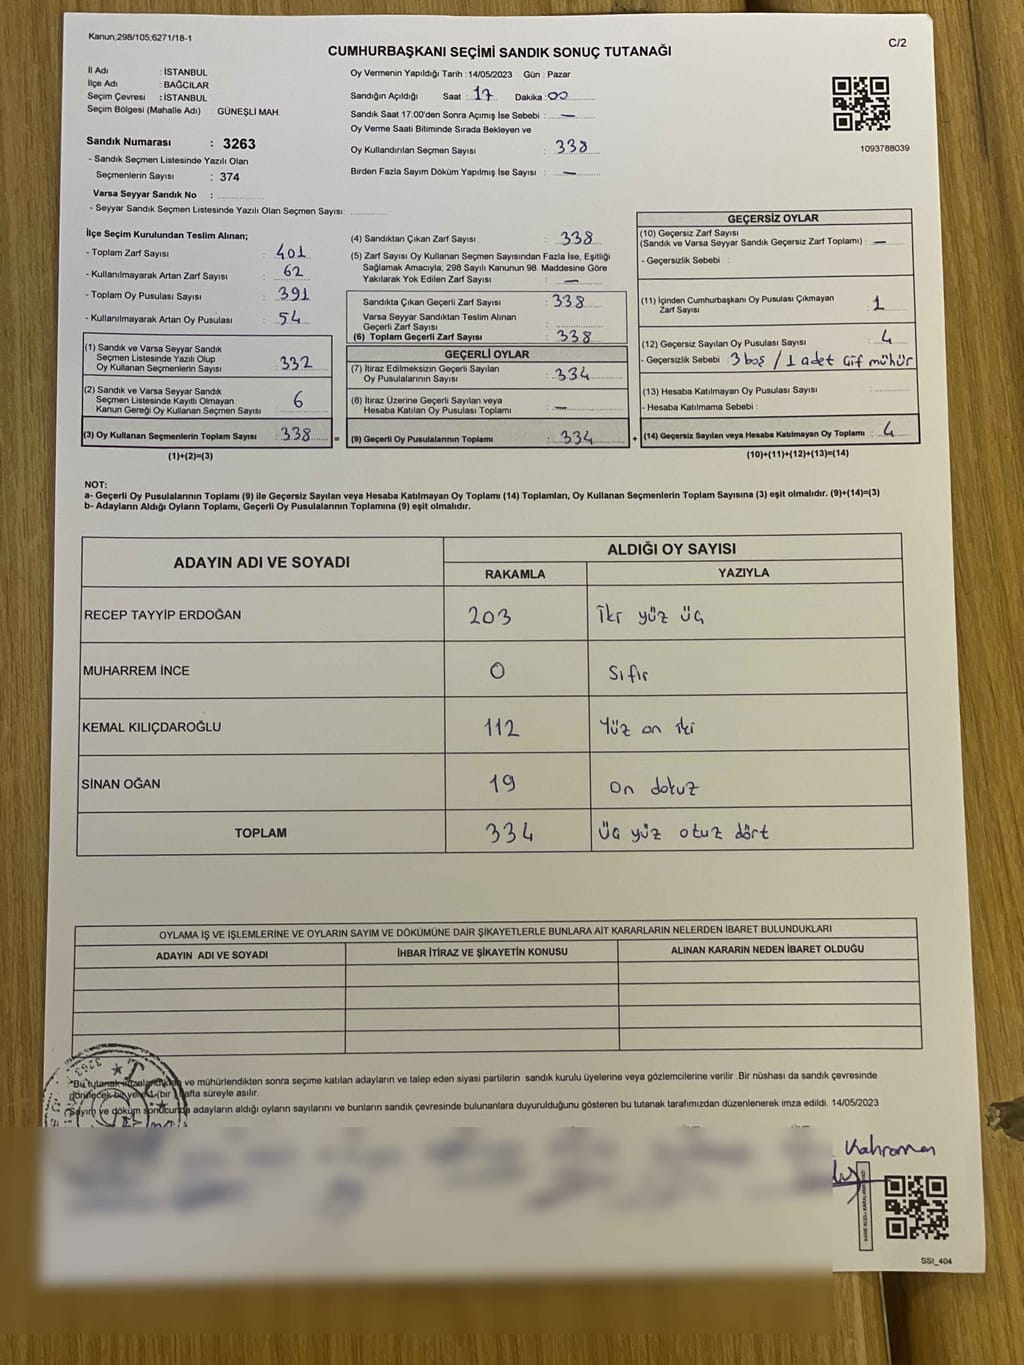 Kanun;298/105;6271/18-1
C/2
CUMHURBAŞKANI SEÇİMİ SANDIK SONUÇ TUTANAĞI
İl Adı : İSTANBUL
İlçe Adı : BAĞCILAR
Seçim Çevresi : İSTANBUL
Seçim Bölgesi (Mahalle Adı) : GÜNEŞLİ MAH.
Sandık Numarası : 3263
- Sandık Seçmen Listesinde Yazılı Olan
Seçmenlerin Sayısı : 374
Varsa Seyyar Sandık No :
- Seyyar Sandık Seçmen Listesinde Yazılı Olan Seçmen Sayısı:
Oy Vermenin Yapıldığı Tarih : 14/05/2023 Gün : Pazar
Sandığın Açıldığı Saat : 17 Dakika : 00
Sandık Saat 17:00'den Sonra Açımış İse Sebebi : —
Oy Verme Saati Bitiminde Sırada Bekleyen ve
Oy Kullandırılan Seçmen Sayısı : 338
Birden Fazla Sayım Döküm Yapılmış İse Sayısı : —
1093788039
İlçe Seçim Kurulundan Teslim Alınan;
- Toplam Zarf Sayısı : 401
- Kullanılmayarak Artan Zarf Sayısı : 62
- Toplam Oy Pusulası Sayısı : 391
- Kullanılmayarak Artan Oy Pusulası : 54
(1) Sandık ve Varsa Seyyar Sandık
Seçmen Listesinde Yazılı Olup
Oy Kullanan Seçmenlerin Sayısı : 332
(2) Sandık ve Varsa Seyyar Sandık
Seçmen Listesinde Kayıtlı Olmayan
Kanun Gereği Oy Kullanan Seçmen Sayısı : 6
(3) Oy Kullanan Seçmenlerin Toplam Sayısı : 338
(1)+(2)=(3)
(4) Sandıktan Çıkan Zarf Sayısı : 338
(5) Zarf Sayısı Oy Kullanan Seçmen Sayısından Fazla İse, Eşitliği
Sağlamak Amacıyla; 298 Sayılı Kanunun 98. Maddesine Göre
Yakılarak Yok Edilen Zarf Sayısı : —
Sandıkta Çıkan Geçerli Zarf Sayısı : 338
Varsa Seyyar Sandıktan Teslim Alınan
Geçerli Zarf Sayısı :
(6) Toplam Geçerli Zarf Sayısı : 338
GEÇERLİ OYLAR
(7) İtiraz Edilmeksizin Geçerli Sayılan
Oy Pusulalarının Sayısı : 334
(8) İtiraz Üzerine Geçerli Sayılan veya
Hesaba Katılan Oy Pusulası Toplamı : —
= (9) Geçerli Oy Pusulalarının Toplamı : 334
GEÇERSİZ OYLAR
(10) Geçersiz Zarf Sayısı
(Sandık ve Varsa Seyyar Sandık Geçersiz Zarf Toplamı) : —
- Geçersizlik Sebebi :
(11) İçinden Cumhurbaşkanı Oy Pusulası Çıkmayan
Zarf Sayısı : 1
(12) Geçersiz Sayılan Oy Pusulası Sayısı : 4
- Geçersizlik Sebebi : 3 boş / 1 adet Gif mühür
(13) Hesaba Katılmayan Oy Pusulası Sayısı :
- Hesaba Katılmama Sebebi :
+ (14) Geçersiz Sayılan veya Hesaba Katılmayan Oy Toplamı : 4
(10)+(11)+(12)+(13)=(14)
NOT:
a- Geçerli Oy Pusulalarının Toplamı (9) ile Geçersiz Sayılan veya Hesaba Katılmayan Oy Toplamı (14) Toplamları, Oy Kullanan Seçmenlerin Toplam Sayısına (3) eşit olmalıdır. (9)+(14)=(3)
b- Adayların Aldığı Oyların Toplamı, Geçerli Oy Pusulalarının Toplamına (9) eşit olmalıdır.
ADAYIN ADI VE SOYADI
ALDIĞI OY SAYISI
RAKAMLA YAZIYLA
RECEP TAYYİP ERDOĞAN 203 İki yüz üç
MUHARREM İNCE 0 Sıfır
KEMAL KILIÇDAROĞLU 112 Yüz on iki
SİNAN OĞAN 19 On dokuz
TOPLAM 334 Üç yüz otuz dört
OYLAMA İŞ VE İŞLEMLERİNE VE OYLARIN SAYIM VE DÖKÜMÜNE DAİR ŞİKAYETLERLE BUNLARA AİT KARARLARIN NELERDEN İBARET BULUNDUKLARI
ADAYIN ADI VE SOYADI İHBAR İTİRAZ VE ŞİKAYETİN KONUSU ALINAN KARARIN NEDEN İBARET OLDUĞU
3263
*Bu tutanak imzalandıktan ve mühürlendikten sonra seçime katılan adayların ve talep eden siyasi partilerin sandık kurulu üyelerine ve/veya gözlemcilerine verilir .Bir nüshası da sandık çevresinde
görülecek bir yere 1 (bir ) hafta süreyle asılır.
Sayım ve döküm sonucunda adayların aldığı oyların sayılarını ve bunların sandık çevresinde bulunanlara duyurulduğunu gösteren bu tutanak tarafımızdan düzenlenerek imza edildi. 14/05/2023
Kahraman
SSI_404